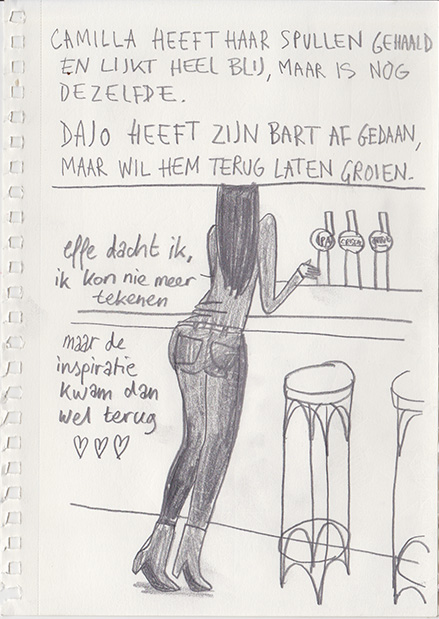 CAMILLA HEEFT HAAR SPULLEN GEHAALD
EN LIJKT HEEL BLIJ, MAAR IS NOG
DEZELFDE.
DAJO HEEFT ZIJN BART AF GEDAAN,
MAAR WIL HEM TERUG LATEN GROIEN.
effe dacht ik,
ik kon nie meer
tekenen
IPA
maar de
inspiratie
kwam dan
wel terug
♡♡♡